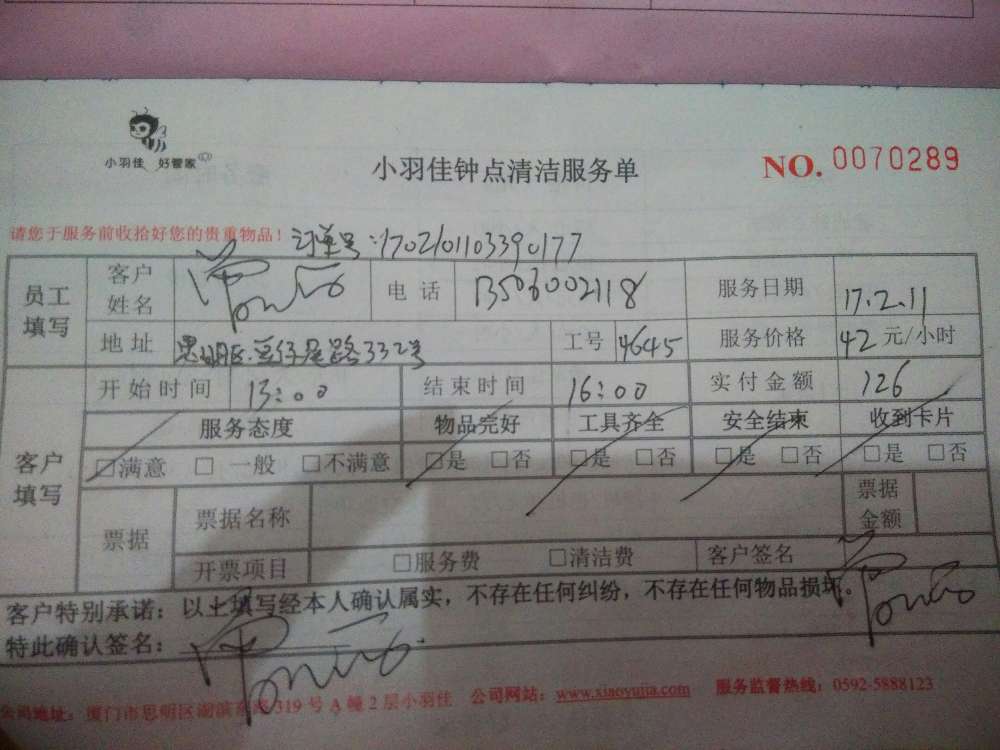 小羽佳 好管家
小羽佳钟点清洁服务单
NO. 0070289
请您于服务前收拾好您的贵重物品！ 订单号：1702101103390177
员工填写 客户姓名 电话 13506002118 服务日期 17.2.11
地址 思明区 仔尾路332号 工号 4645 服务价格 42 元/小时
客户填写 开始时间 13:00 结束时间 16:00 实付金额 126
服务态度 物品完好 工具齐全 安全结束 收到卡片
□满意 □一般 □不满意 □是 □否 □是 □否 □是 □否 □是 □否
票据 票据名称 票据金额
开票项目 □服务费 □清洁费 客户签名
客户特别承诺：以上填写经本人确认属实，不存在任何纠纷，不存在任何物品损坏。
特此确认签名：
公司地址：厦门市思明区湖滨东路319号A幢2层小羽佳 公司网站：www.xiaoyujia.com 服务监督热线：0592-5888123